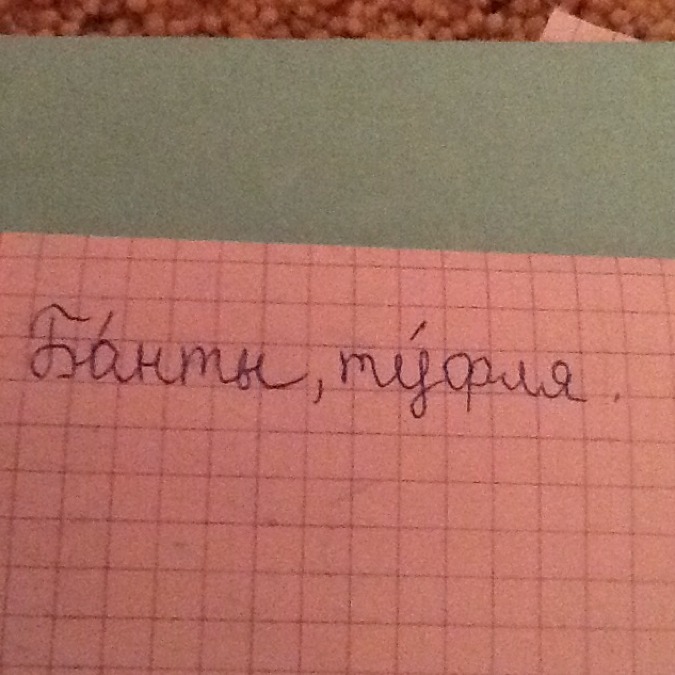 Ба́нты, ту́фля.